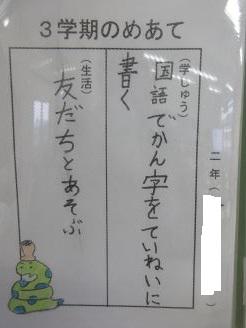 3学期のめあて
二年(
(学しゅう)
国語でかん字をていねいに
書く
(生活)
友だちとあそぶ